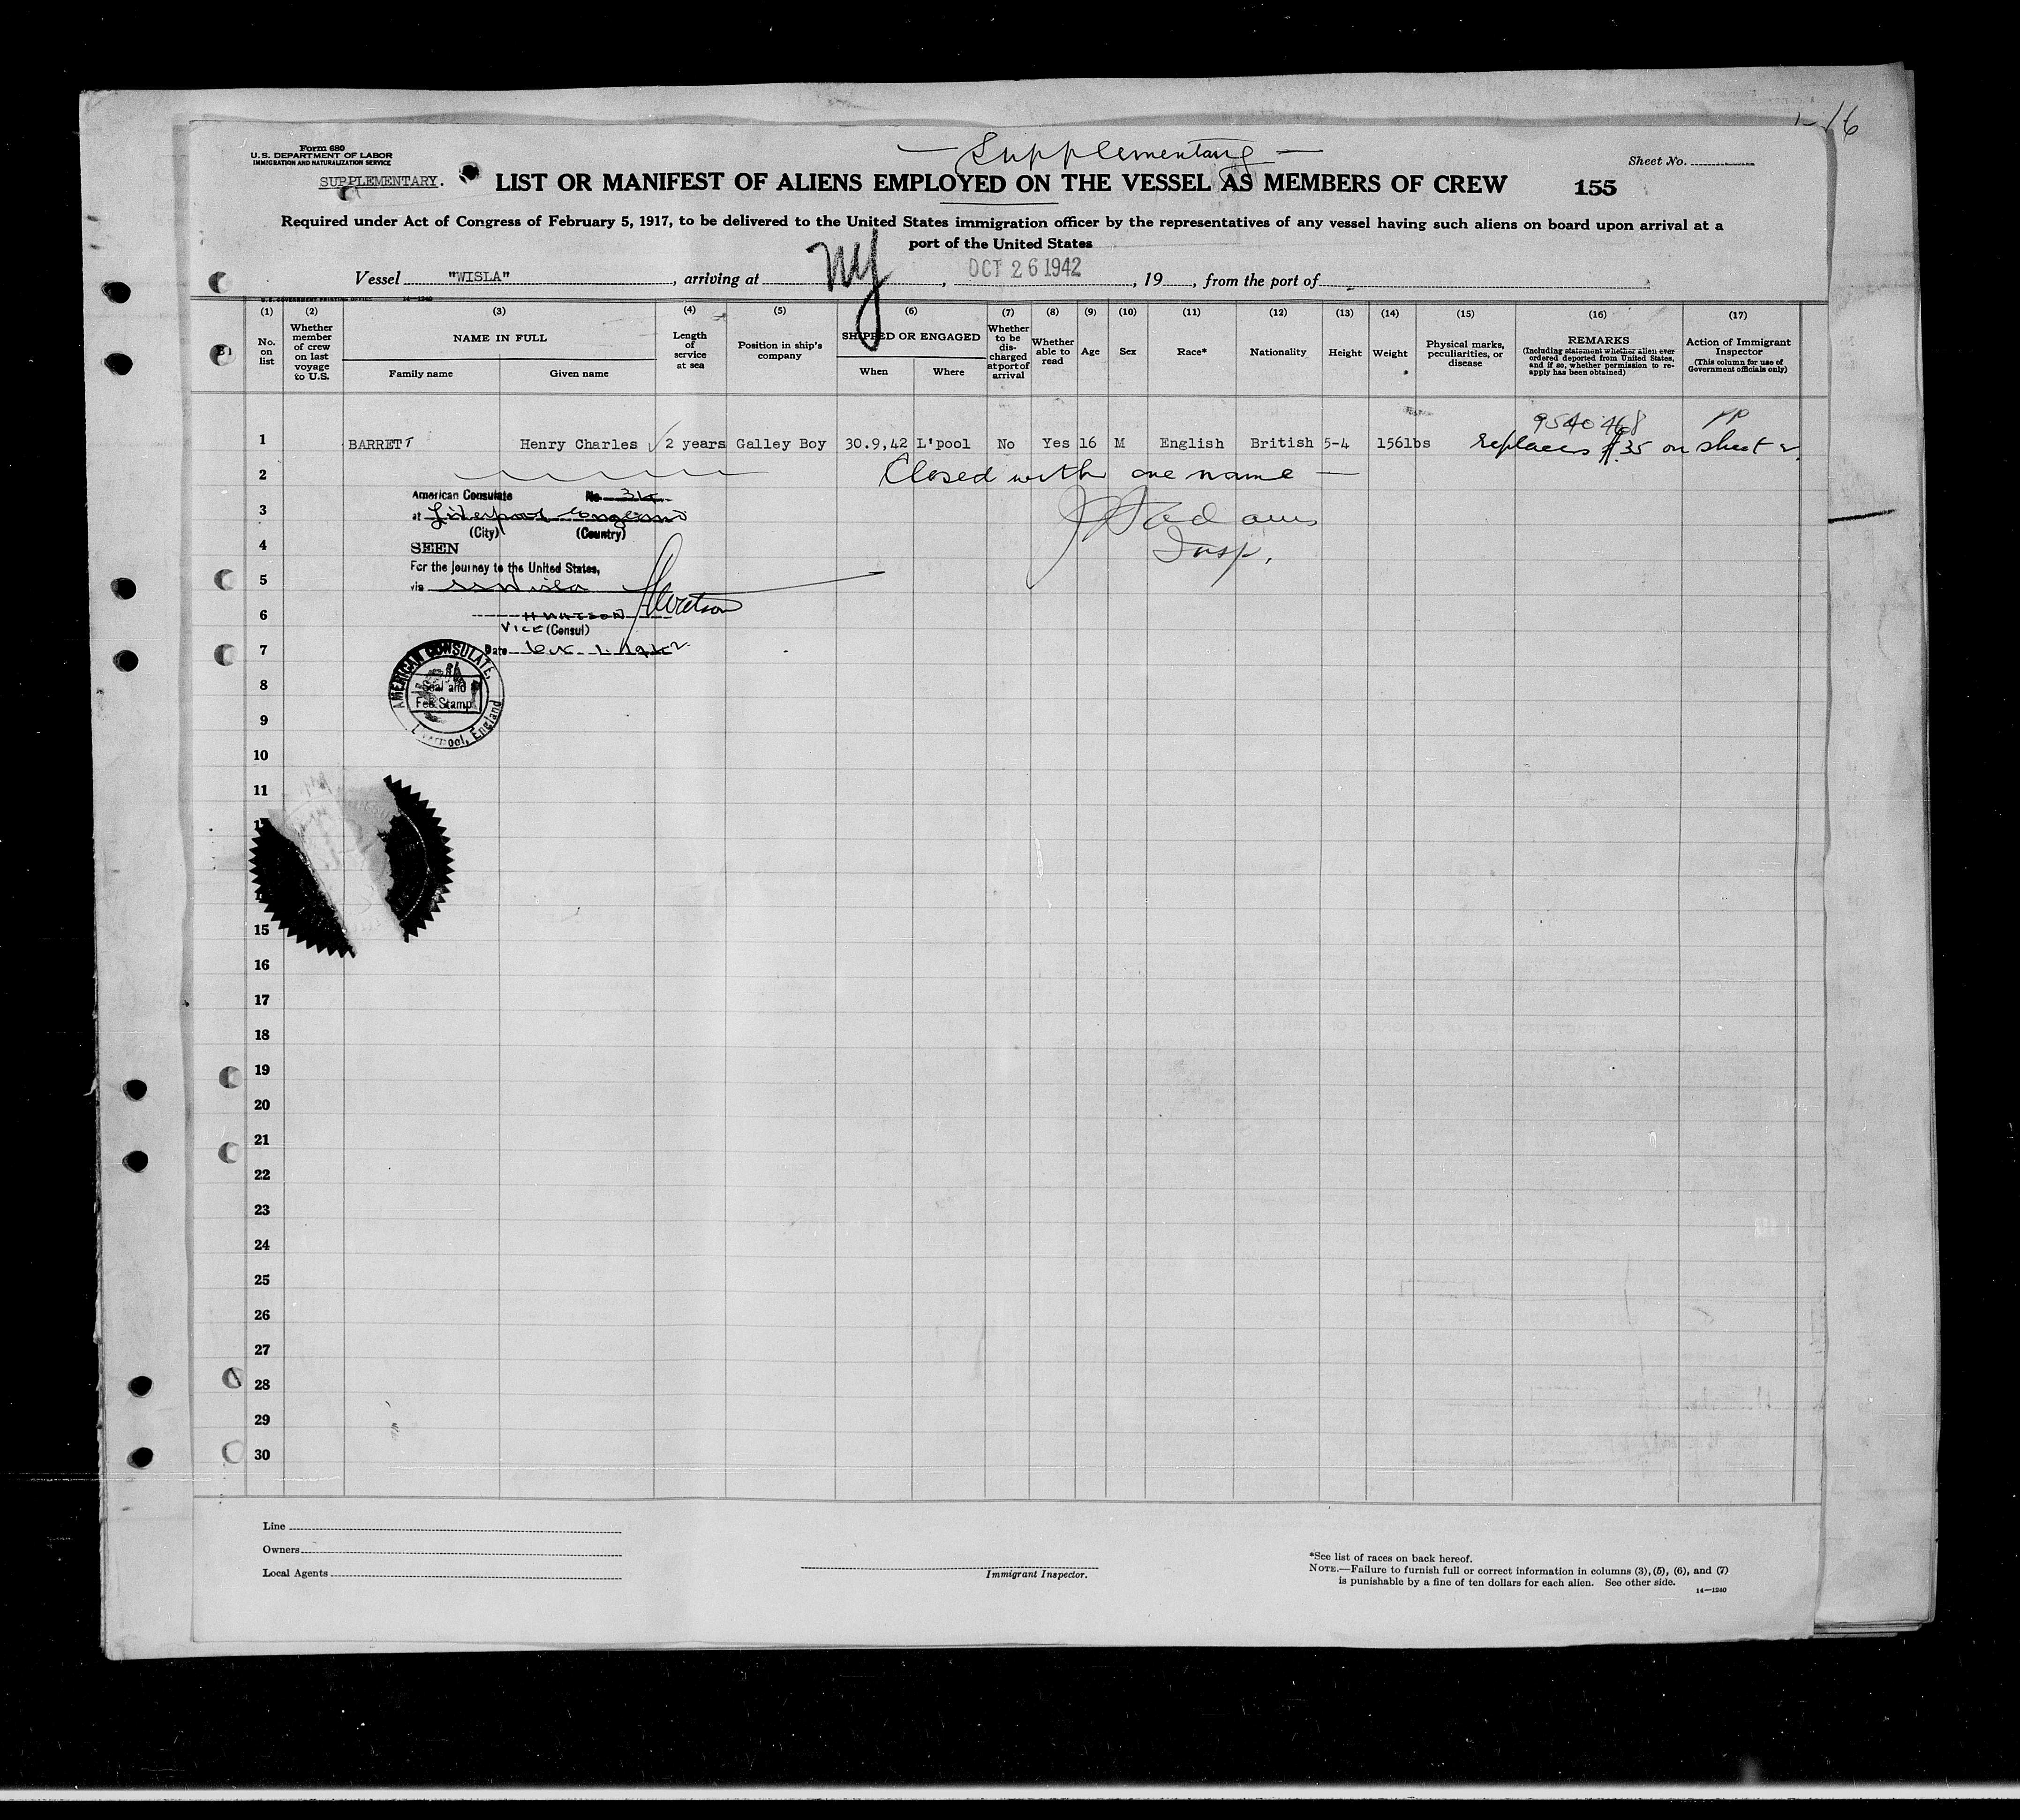 16
Form 680
U.S. DEPARTMENT OF LABOR
IMMIGRATION AND NATURALIZATION SERVICE
SUPPLEMENTARY.
Supplementary
Sheet No.
LIST OR MANIFEST OF ALIENS EMPLOYED ON THE VESSEL AS MEMBERS OF CREW
155
Required under Act of Congress of February 5, 1917, to be delivered to the United States immigration officer by the representatives of any vessel having such aliens on board upon arrival at a
port of the United States
Vessel "WISLA", arriving at NY, OCT 26 1942, 19, from the port of
U.S. GOVERNMENT PRINTING OFFICE 14—1240
(1) No. on list
(2) Whether member of crew on last voyage to U.S.
(3) NAME IN FULL
Family name
Given name
(4) Length of service at sea
(5) Position in ship's company
(6) SHIPPED OR ENGAGED
When
Where
(7) Whether to be discharged at port of arrival
(8) Whether able to read
(9) Age
(10) Sex
(11) Race*
(12) Nationality
(13) Height
(14) Weight
(15) Physical marks, peculiarities, or disease
(16) REMARKS
(Including statement whether alien ever ordered deported from United States, and if so, whether permission to re-apply has been obtained)
(17) Action of Immigrant Inspector
(This column for use of Government officials only)
9540468 PP
1 BARRETT Henry Charles 2 years Galley Boy 30.9,42 L'pool No Yes 16 M English British 5-4 156lbs replaces #35 on sheet 2.
2 Closed with one name
American Consulate No. 34
3 at Liverpool England
(City) (Country)
J Adams
4 SEEN
Insp.
For the journey to the United States,
5 via ss Wisla
HWatson
6 H WATSON
VICE (Consul)
7 Date Oct. 1, 1942
AMERICAN CONSULATE,
Seal and
Fee Stamp
Liverpool, England
8
9
10
11
15
16
17
18
19
20
21
22
23
24
25
26
27
28
29
30
Line
Owners
Local Agents
Immigrant Inspector.
*See list of races on back hereof.
NOTE.—Failure to furnish full or correct information in columns (3), (5), (6), and (7)
is punishable by a fine of ten dollars for each alien. See other side.
14—1240